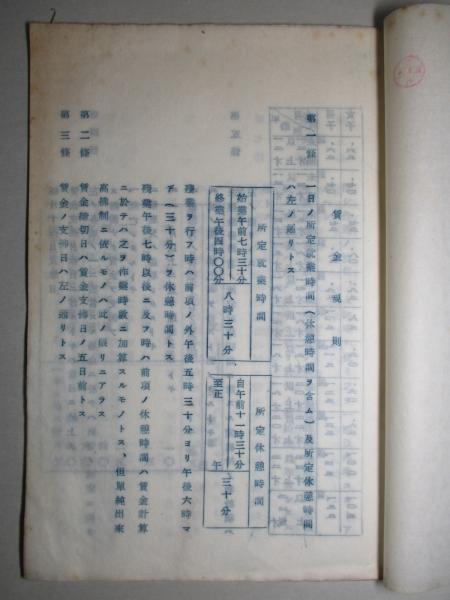 賃金規則
第一條 一日ノ所定就業時間(休憩時間ヲ含ム)及所定休憩時間
ハ左ノ通リトス
所定就業時間
始業午前七時三十分
終業午後四時〇〇分
八時三十分
所定休憩時間
自午前十一時三十分
至正午
三十分
殘業ヲ行フ時ハ前項ノ外午後五時三十分ヨリ午後六時マ
デ(三十分)ヲ休憩時間トス
殘業午後七時以後ニ及フ時ハ前項ノ休憩時間ハ賃金計算
ニ於テハ之ヲ作業時數ニ加算スルモノトス、但單純出來
高擧制ニ依ルモノハ此ノ限リニアラス
第二條 賃金締切日ハ賃金支拂日ノ五日前トス
第三條 賃金ノ支拂日ハ左ノ通リトス